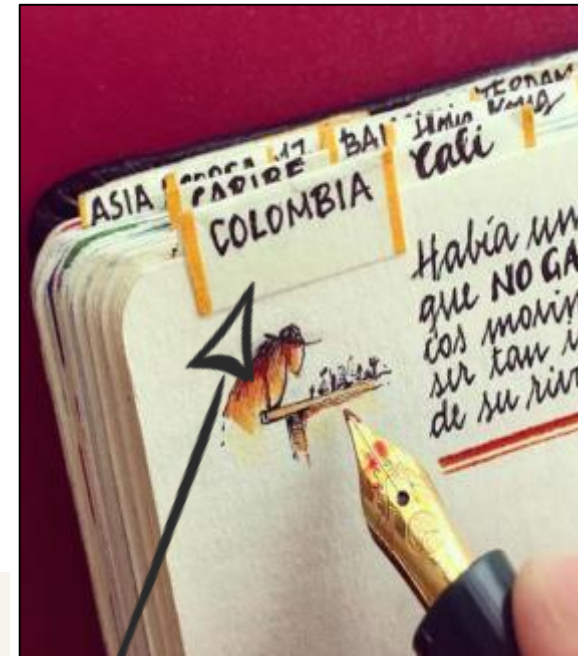 ASIA
CARIBE
BA
COLOMBIA
Cali
Había un
que NO GA
cos movim
ser tan i
de su riv